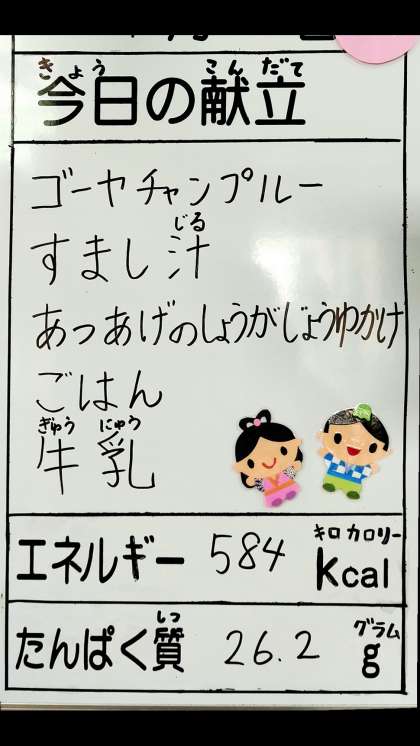 きょう こんだて
今日の献立
ゴーヤチャンプルー
じる
すまし汁
あつあげのしょうがじょうゆかけ
ごはん
ぎゅう にゅう
牛乳
キロ カロリー
エネルギー 584 kcal
しつ グラム
たんぱく質 26.2 g